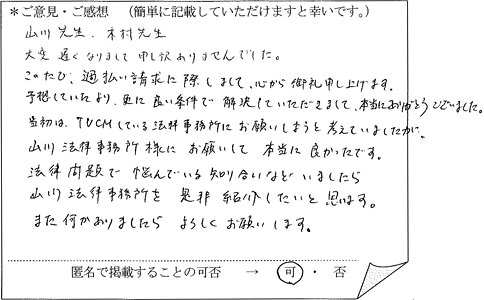 ＊ご意見・ご感想　（簡単に記載していただけますと幸いです。）
山川先生、木村先生
大変遅くなりまして申し訳ありませんでした。
このたび、過払い請求に際しまして、心から御礼申し上げます。
予想していたより、更に良い条件で解決していただきまして、本当にありがとうございました。
当初は、TVCMしている法律事務所にお願いしようと考えていましたが、
山川法律事務所様にお願いして本当に良かったです。
法律問題で悩んでいる知り合いなどいましたら
山川法律事務所を是非紹介したいと思います。
また何かありましたらよろしくお願いします。
匿名で掲載することの可否　→　可・否